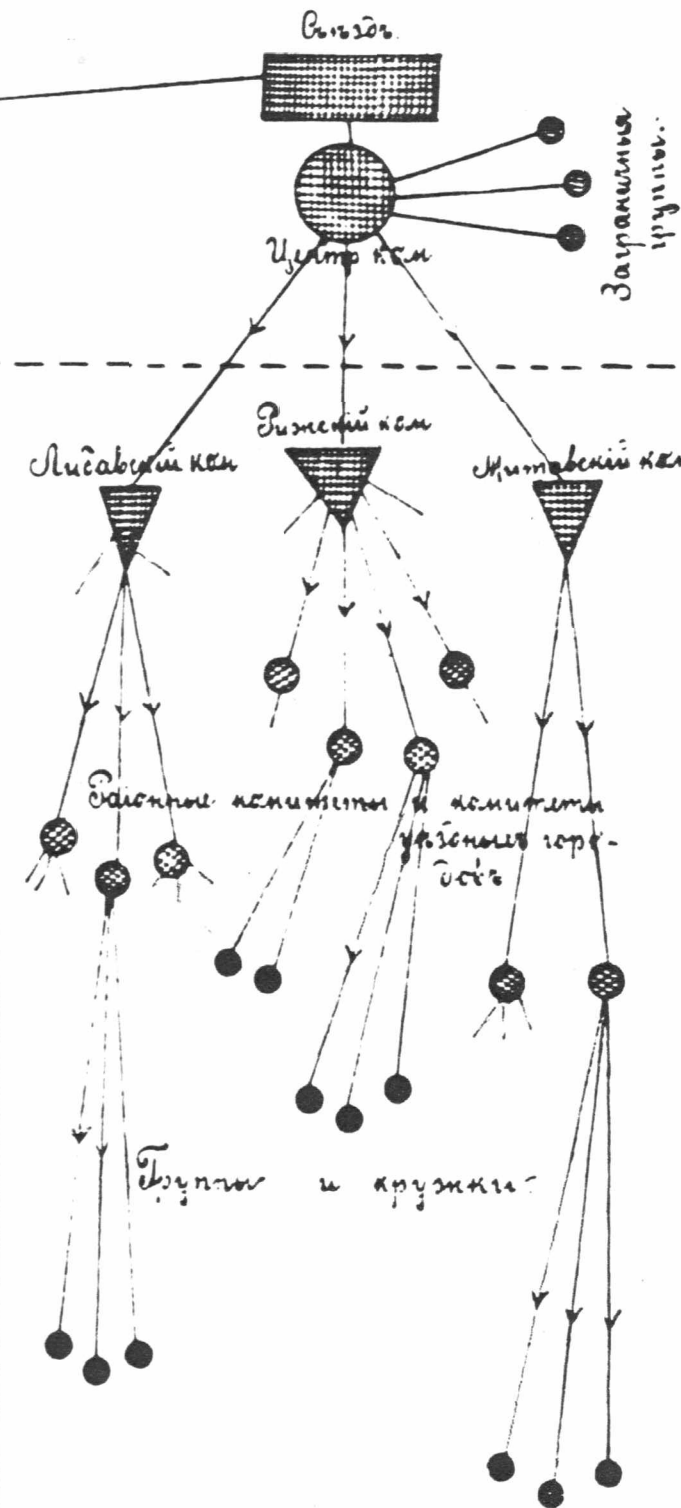 Съѣздъ.
Заграничныя
группы.
Центр ком
Рижскій ком
Либавскій ком
Митавскій ком
Районные комитеты и комитеты
уѣздныхъ горо-
довъ
Группы и кружки